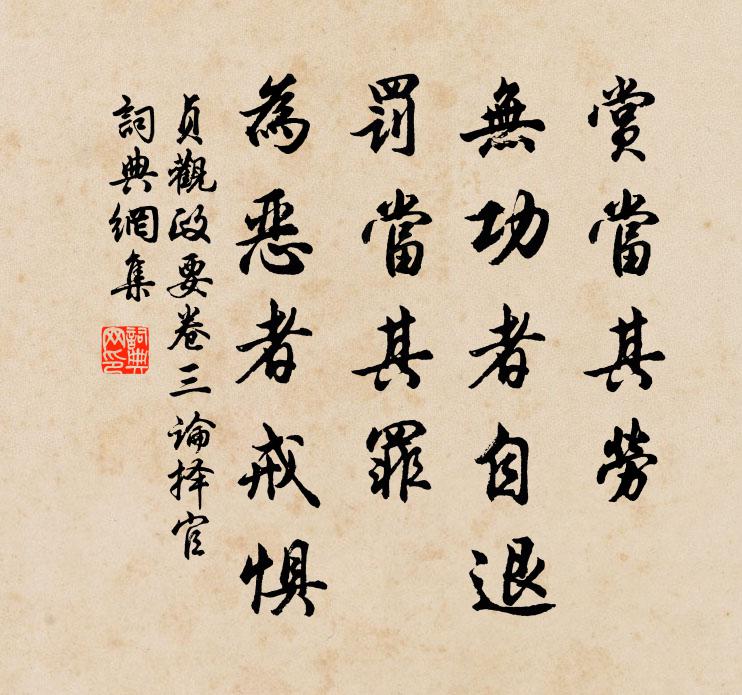 賞當其勞
無功者自退
罰當其罪
為惡者戒懼
貞觀政要卷三論择官
詞典網集
詞典网印